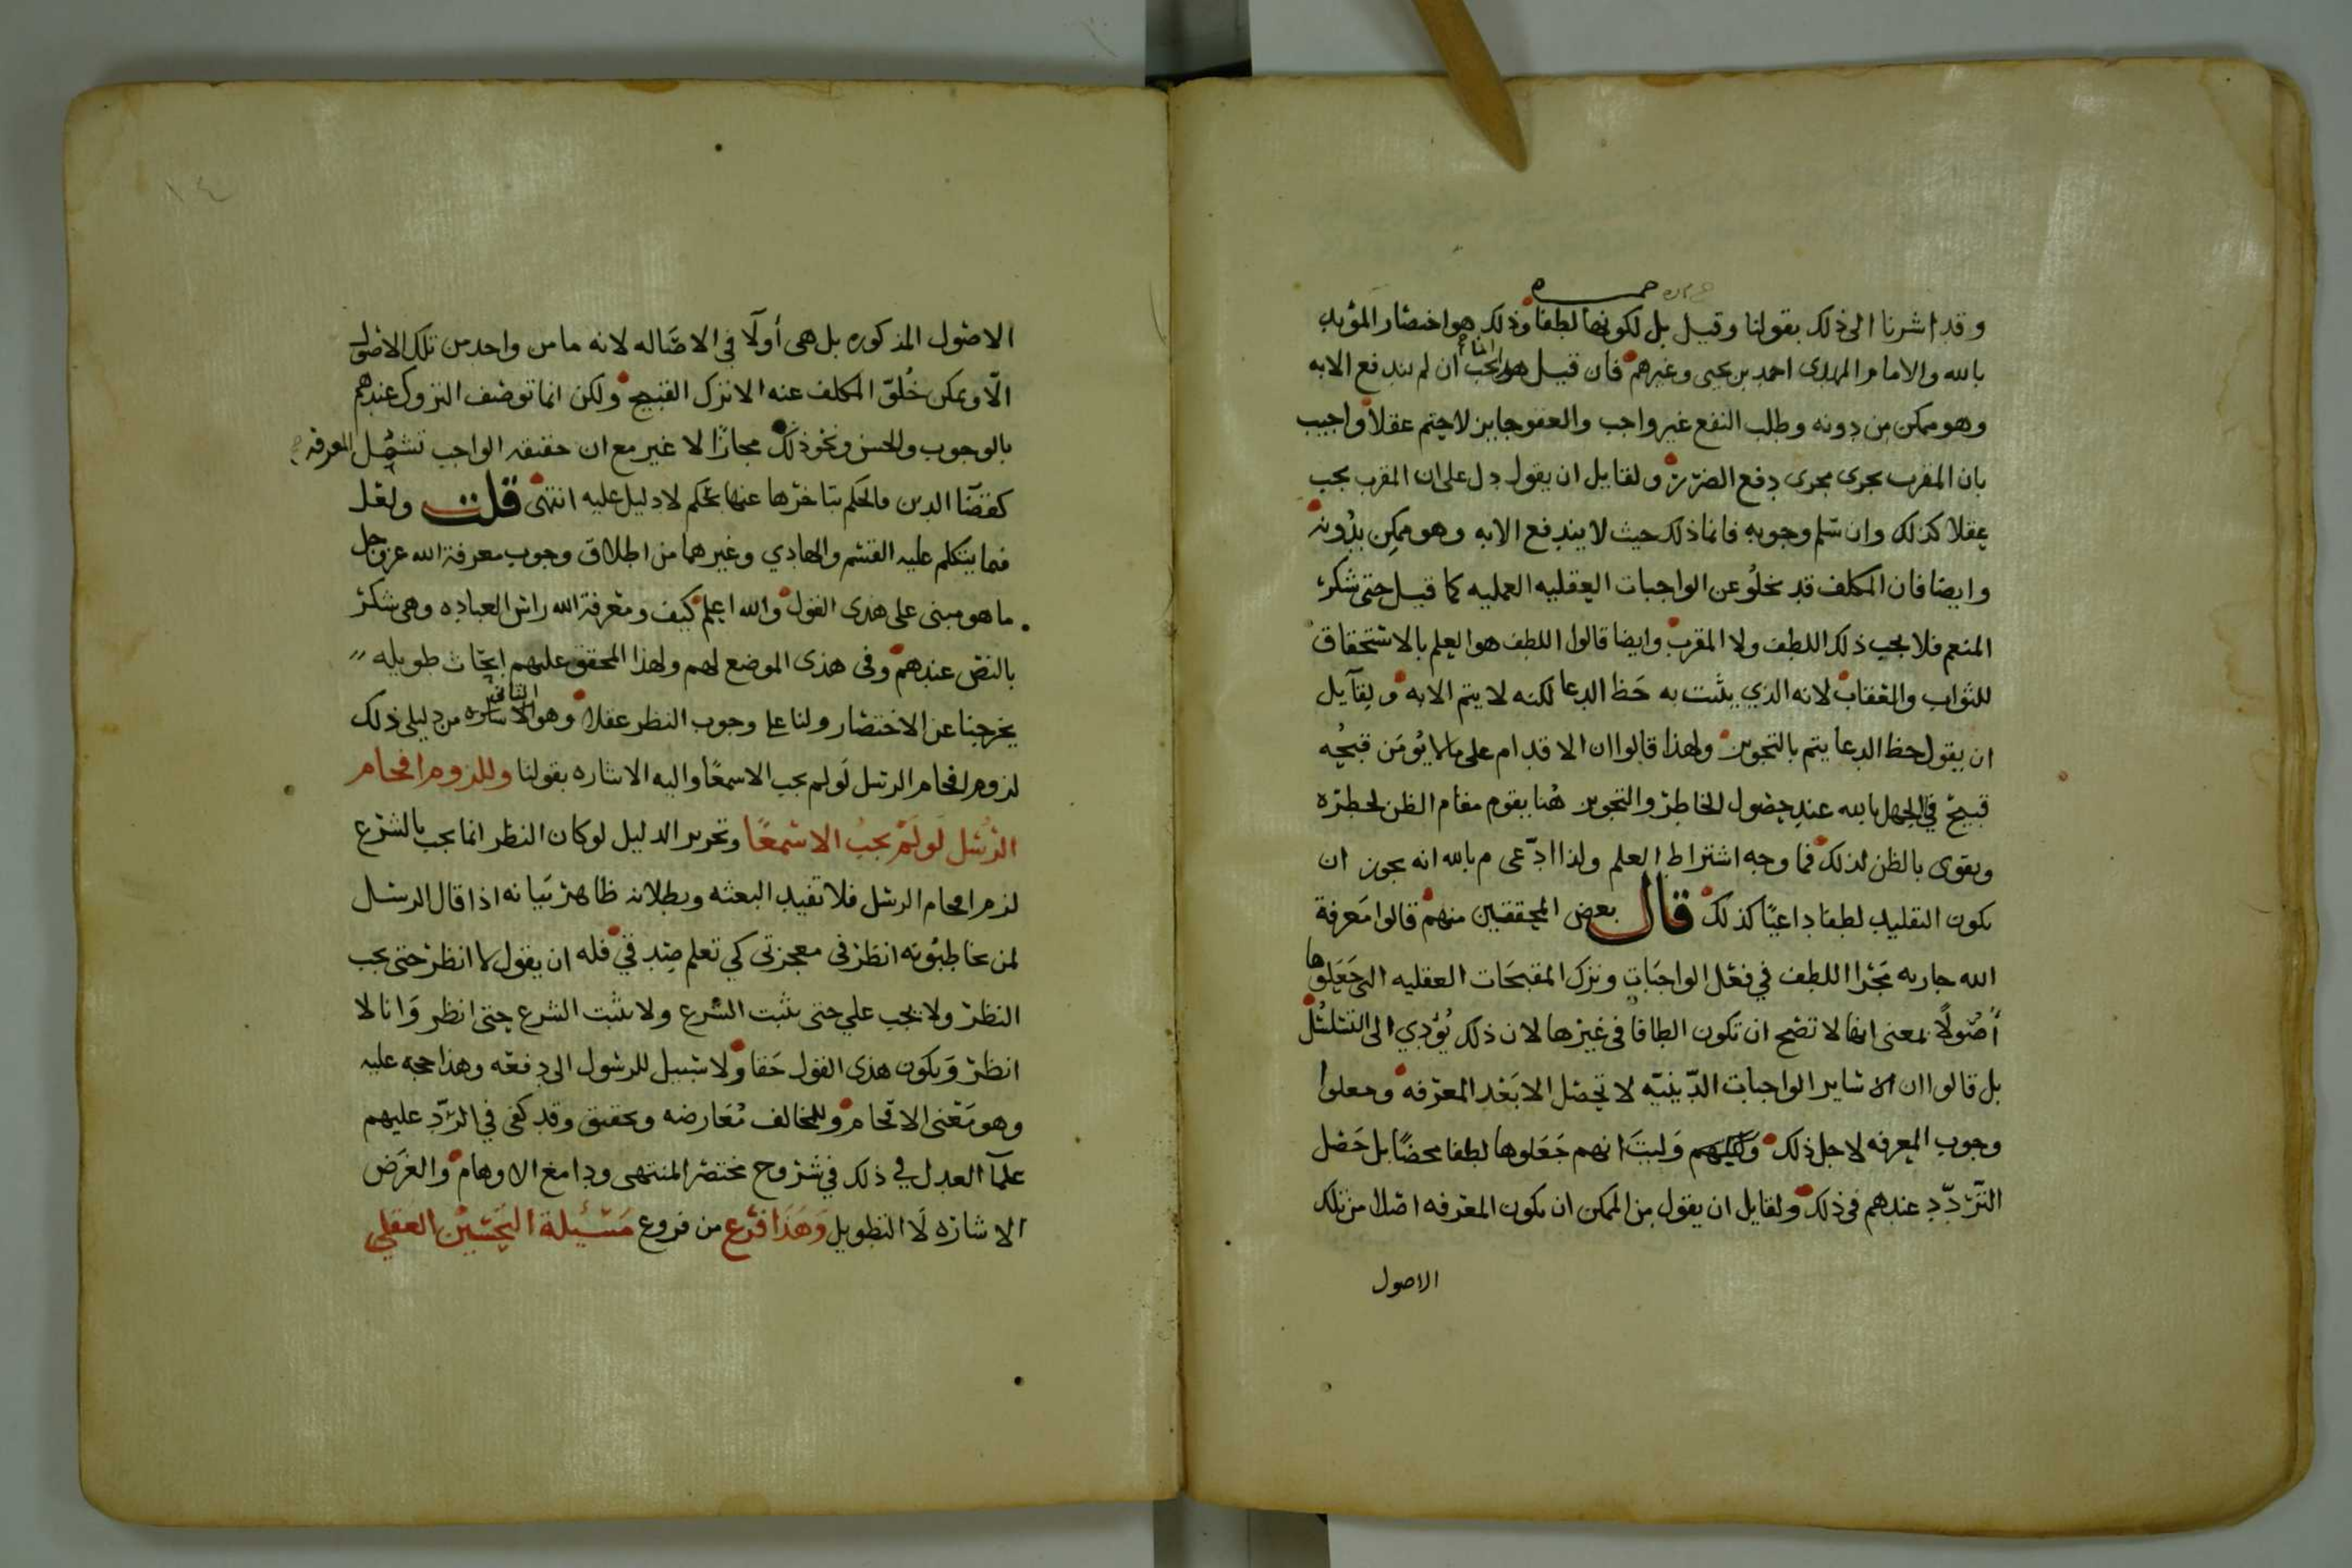 حمزه
وقد اشرنا الى ذلك بقولنا وقيل بل لكونها لطفا وذلك هو اختصار المؤيد
بالله والامام المهدي احمد بن يحيى وغيرهم فان قيل هو يجب ان لم يندفع الا به
وهو ممكن من دونه وطلب النفع غير واجب والعفو جايز لا حتم عقلا واجيب
بان المقرب يجرى مجرى دفع الضرر ولقايل ان يقول دل على ان المقرب يجب
عقلا كذلك وان سلم وجوبه فانما ذلك حيث لا يندفع الا به وهو ممكن بدونه
وايضا فان المكلف قد يخلو عن الواجبات العقليه العمليه كما قيل حتى شكر
المنعم فلا يجب ذلك اللطف ولا المقرب وايضا قالوا اللطف هو العلم بالاستحقاق
للثواب والعقاب لانه الذي يثبت به حظ الدعا لكنه لا يتم الا به ولقآيل
ان يقول حظ الدعا يتم بالتجويز ولهذا قالوا ان الاقدام على ما لا يؤمن قبحه
قبيح في الجهل بالله عند حصول الخاطر والتجويز هنا يقوم مقام الظن لخطره
ويقوى بالظن لذلك فما وجه اشتراط العلم ولذا ادّعى م بالله انه يجوز ان
يكون التقليد لطفا داعيًا كذلك قال بعض المحققين منهم قالوا معرفة
الله جاريه مجرا اللطف في فعل الواجبات وترك المقبحات العقليه التي جعلوها
أصولًا بمعنى انها لا تصح ان تكون الطافا في غيرها لان ذلك يؤدي الى التسلسل
بل قالوا ان ساير الواجبات الدّينيّه لا تحصل الا بعد المعرفه وجعلوا
وجوب المعرفه لاجل ذلك وليت انهم جعلوها لطفا محضًا بل حصل
التردّد عندهم في ذلك ولقايل ان يقول من الممكن ان يكون المعرفه اصلا من تلك
الاصول
الاصول المذكوره بل هي أولا في الاصاله لانه ما من واحد من تلك الاصول
الّا ويمكن خلوّ المكلف عنه الا ترك القبيح ولكن انما توصف التروك عندهم
بالوجوب والحسن ونحو ذلك مجازًا لا غير مع ان حقيقه الواجب تشمل المعرفه
كقضآ الدين فالحكم بتاخرها عنها تحكم لا دليل عليه انتهى قلت ولعل
فما يتكلم عليه القسم والهادي وغيرهما من اطلاق وجوب معرفة الله عز وجل
ما هو مبنى على هذى القول والله اعلم كيف ومعرفة الله راس العباده وهي شكر
بالنص عندهم وفى هذى الموضع لهم ولهذا المحقق عليهم ابحاث طويله
يخرجنا عن الاختصار ولنا على وجوب النظر عقلا وهو الثاني من دليلي ذلك
لزوم افحام الرسل لو لم يجب الا سمعًا واليه الاشاره بقولنا وللزوم افحام
الرسل لو لم يجب الا سمعًا وتحرير الدليل لو كان النظر انما يجب بالشرع
لزم افحام الرسل فلا تفيد البعثه وبطلانه ظاهر بيانه اذا قال الرسل
لمن يخاطبونه انظر في معجزتي كي تعلم صدقي فله ان يقول لا انظر حتى يجب
النظر ولا يجب علي حتى يثبت الشرع ولا يثبت الشرع حتى انظر وانا لا
انظر ويكون هذى القول حقا ولا سبيل للرسول الى دفعه وهذا حجه عليه
وهو معنى الافحام وللمخالف معارضه وتحقيق وقد كفى في الردّ عليهم
علمآ العدل في ذلك في شروح مختصر المنتهى ودامغ الاوهام والغرض
الاشاره لا التطويل وهذا فرع من فروع مسئلة التحسين العقلي